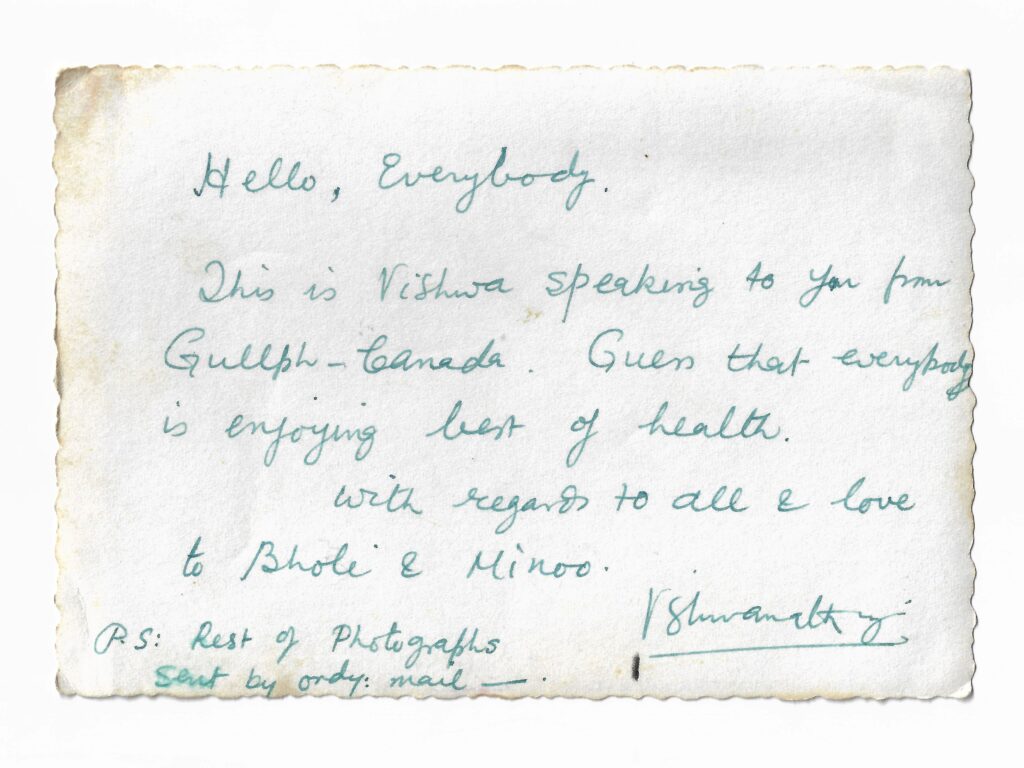 Hello, Everybody.
This is Vishwa speaking to you from
Gullph - Canada. Guess that everybody
is enjoying best of health.
with regards to all & love
to Bholi & Minoo.
Vshwanath
P.S: Rest of Photographs
sent by ordy: mail —.